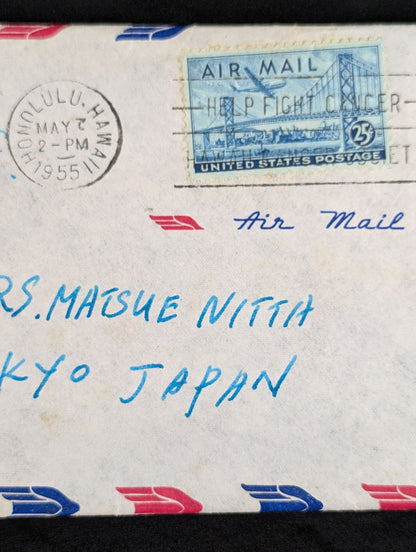 HONOLULU. HAWAII
MAY 7
2 - PM
1955
AIR MAIL
HELP FIGHT CANCER
25¢
UNITED STATES POSTAGE
Air Mail
RS. MATSUE NITTA
KYO JAPAN